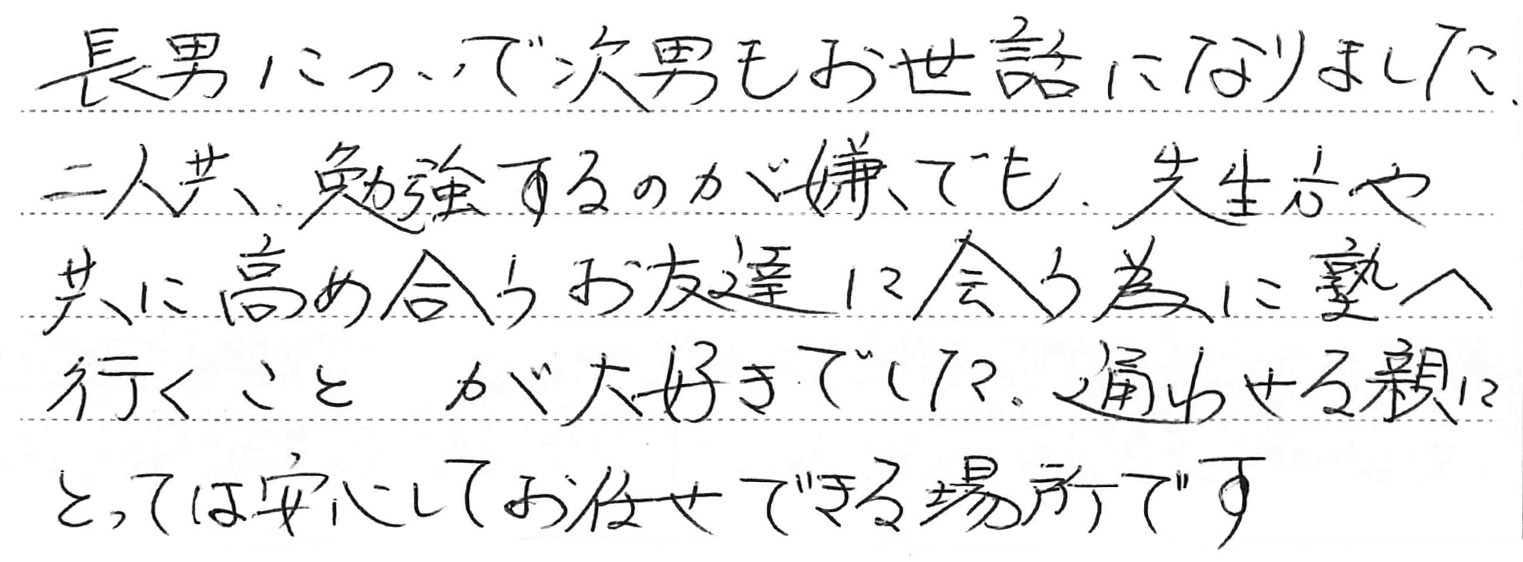 長男についで次男もお世話になりました.
二人共、勉強するのが嫌でも、先生方や
共に高め合うお友達に会う為に塾へ
行くこと が大好きでした。通わせる親に
とっては安心してお任せできる場所です